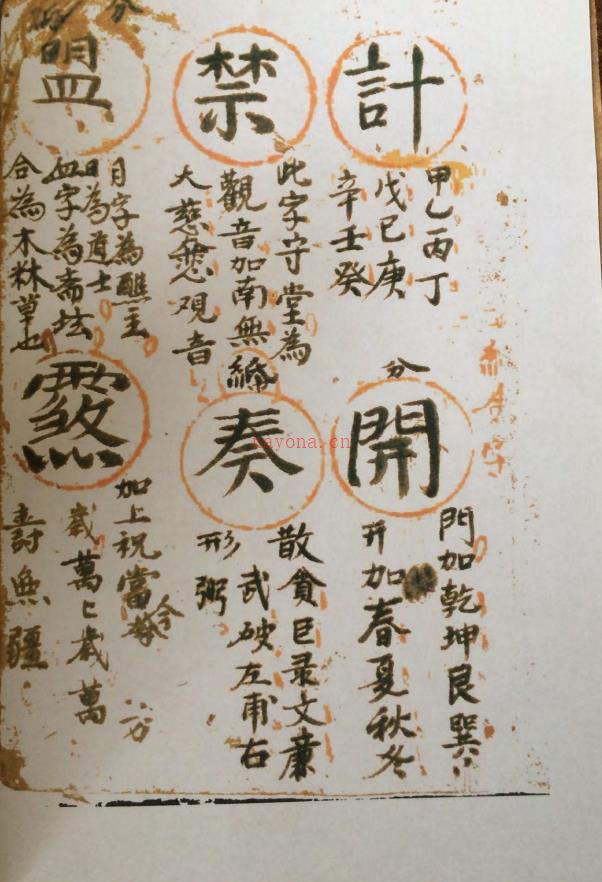 計
甲乙丙丁
戊己庚
辛壬癸
禁
此字守堂為
觀音加南無
大慈悲观音
盟
日字為醮主
日為道士
血字為斋坛
合為木林草也
分
開
門加乾坤艮巽
开加春夏秋冬
奏
散貪巨录文廉
武破左甫右
形粥
加上祝當今
歲萬歲萬
壽無疆
nayona.cn